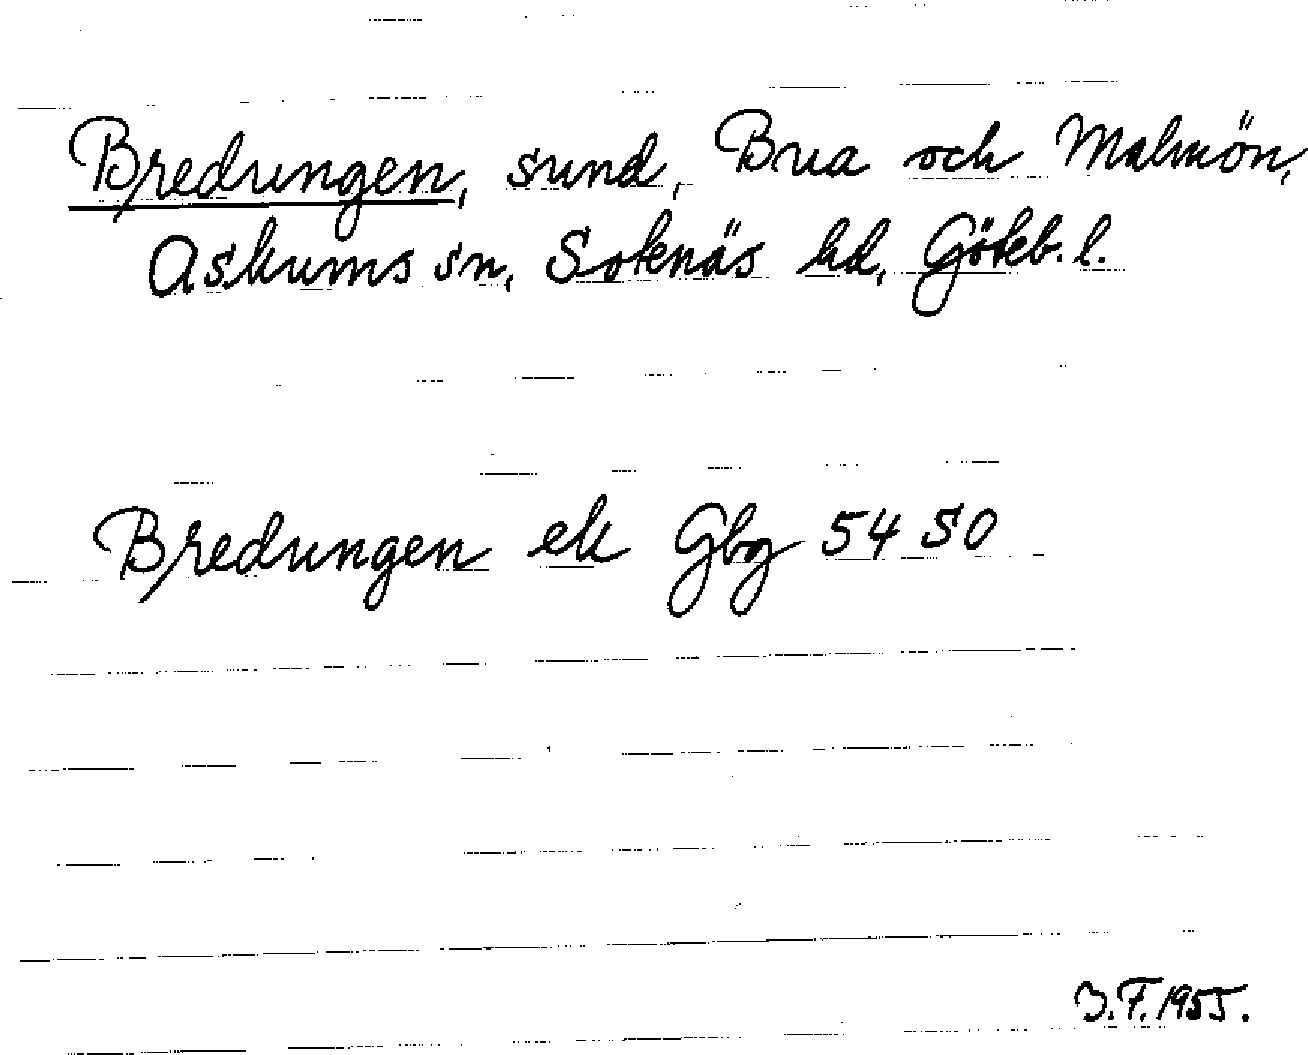 Bredungen, sund, Brua och Malmön,
Askums sn, Sotenäs hd, Göteb. l.
Bredungen ek Gbg 54 SO
B.F. 1955.